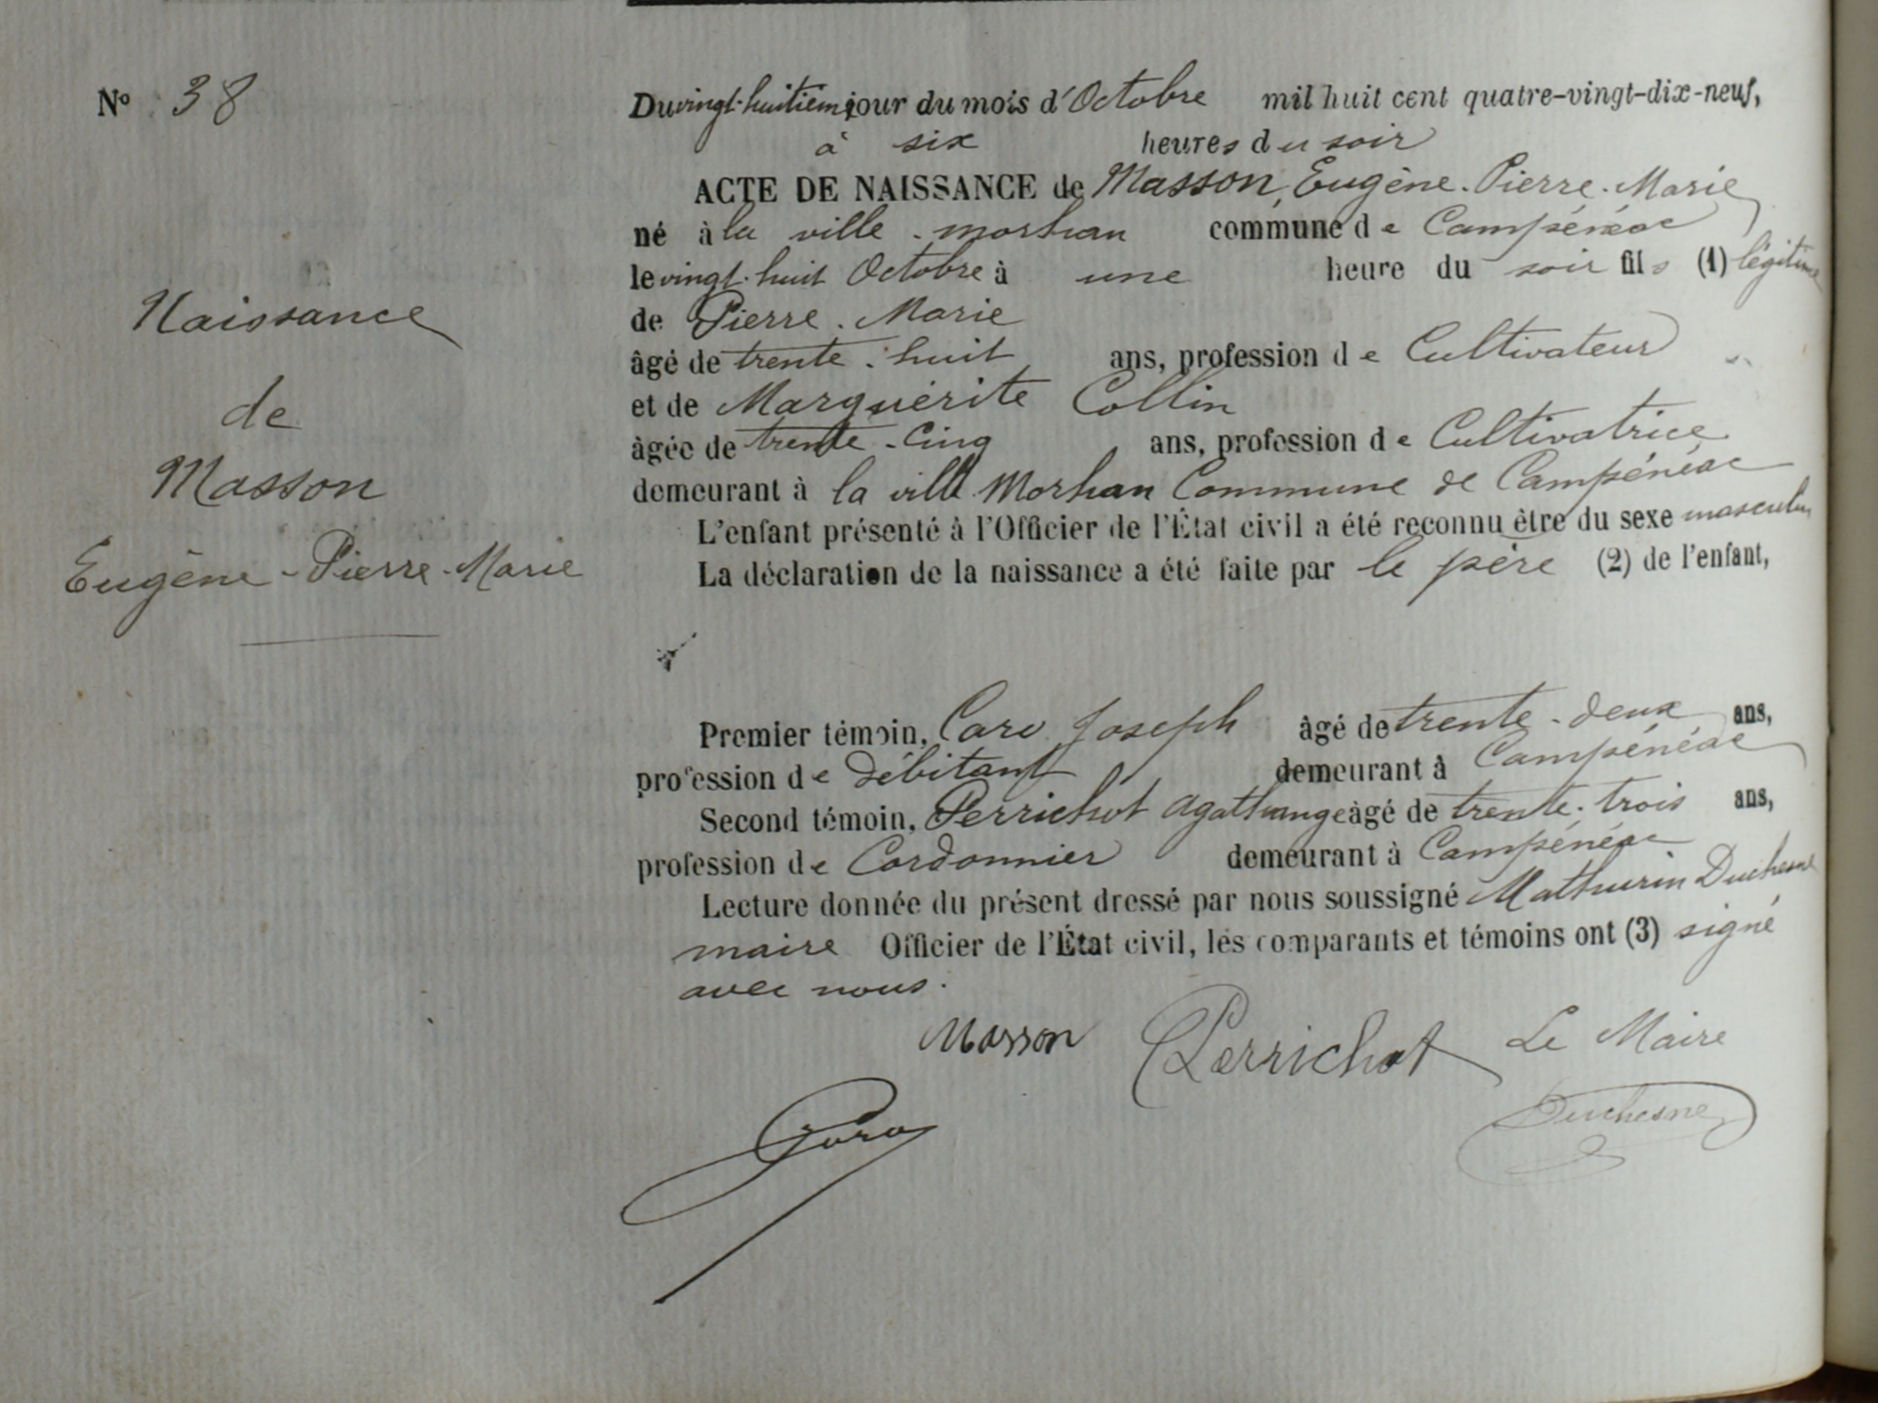 N° 38
Du vingt-huitième jour du mois d'Octobre mil huit cent quatre-vingt-dix-neuf,
à six heures du soir
ACTE DE NAISSANCE de Masson, Eugène-Pierre-Marie
né à la ville-morhan commune de Campénéac
le vingt-huit Octobre à une heure du soir fils (1) légitime
de Pierre-Marie
âgé de trente-huit ans, profession de Cultivateur
et de Marguérite Collin
âgée de trente-Cinq ans, profession de Cultivatrice
demeurant à la ville Morhan Commune de Campénéac
L'enfant présenté à l'Officier de l'État civil a été reconnu être du sexe masculin
La déclaration de la naissance a été faite par le père (2) de l'enfant,
Naissance
de
Masson
Eugène-Pierre-Marie
Premier témoin, Caro Joseph âgé de trente-deux ans,
profession de débitant demeurant à Campénéac
Second témoin, Perrichot Agathange âgé de trente-trois ans,
profession de Cordonnier demeurant à Campénéac
Lecture donnée du présent dressé par nous soussigné Mathurin Duchesne
maire Officier de l'État civil, les comparants et témoins ont (3) signé
avec nous.
Masson Perrichot Le Maire
Caro Duchesne